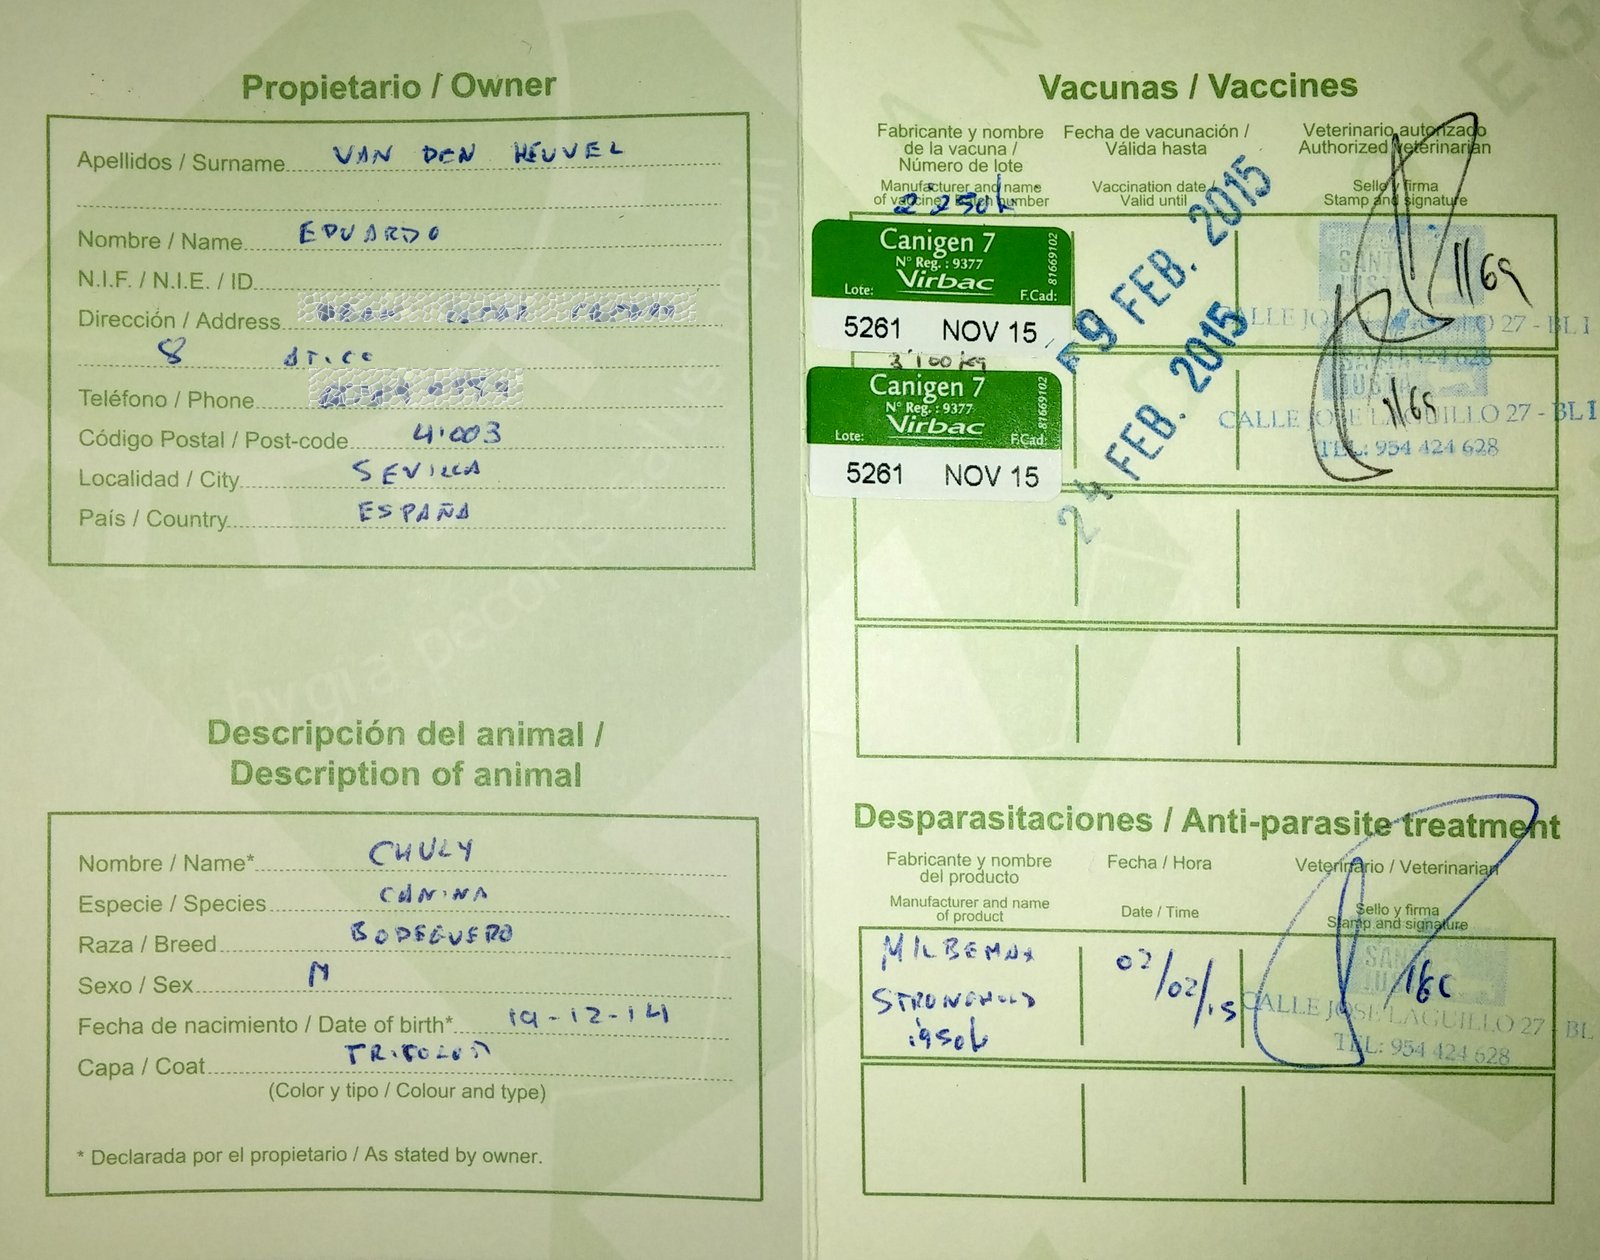 Propietario / Owner
Apellidos / Surname VAN DEN HEUVEL
Nombre / Name EDUARDO
N.I.F. / N.I.E. / ID
Dirección / Address
8 ATICO
Teléfono / Phone
Código Postal / Post-code 41003
Localidad / City SEVILLA
País / Country ESPAÑA
Descripción del animal /
Description of animal
Nombre / Name* CHULY
Especie / Species CANINA
Raza / Breed BODEGUERO
Sexo / Sex M
Fecha de nacimiento / Date of birth* 19-12-14
Capa / Coat TRICOLOR
(Color y tipo / Colour and type)
* Declarada por el propietario / As stated by owner.
Vacunas / Vaccines
Fabricante y nombre de la vacuna / Número de lote
Manufacturer and name of vaccine / Batch number
Fecha de vacunación / Válida hasta
Vaccination date / Valid until
Veterinario autorizado
Authorized veterinarian
Sello y firma
Stamp and signature
Canigen 7
N° Reg. : 9377
Virbac
81669102
Lote: F.Cad:
5261 NOV 15
-9 FEB. 2015
3'100kg
Canigen 7
N° Reg. : 9377
Virbac
81669102
Lote: F.Cad:
5261 NOV 15
24 FEB. 2015
SANTA JUSTA
CALLE JOSE LAGUILLO 27 - BL 1
TEL: 954 424 628
Desparasitaciones / Anti-parasite treatment
Fabricante y nombre del producto
Manufacturer and name of product
Fecha / Hora
Date / Time
Veterinario / Veterinarian
Sello y firma
Stamp and signature
MILBEMAX
STRONGHOLD
02/02/15
SANTA JUSTA
CALLE JOSE LAGUILLO 27 - BL
TEL: 954 424 628